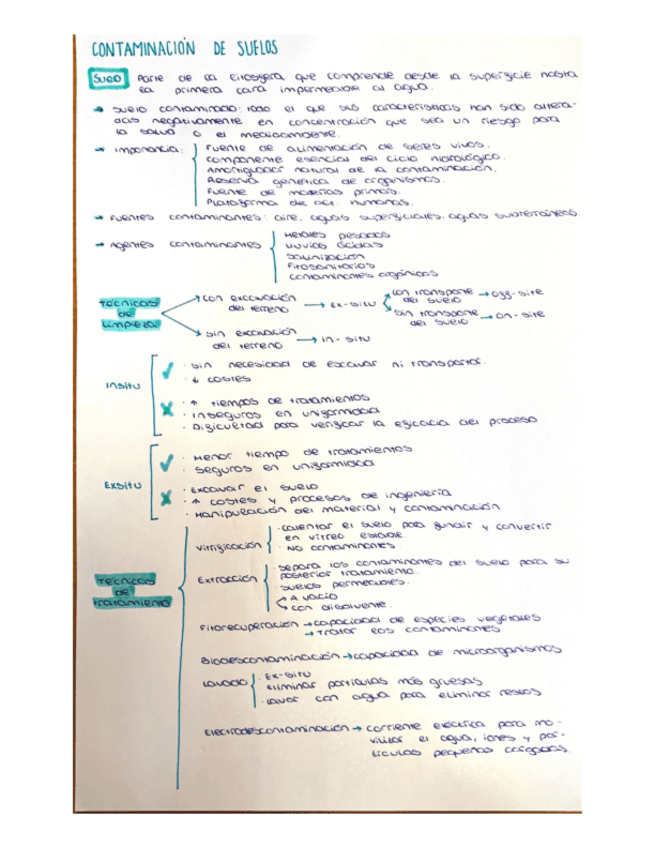 CONTAMINACIÓN DE SUELOS
Suelo parte de la litosfera que comprende desde la superficie hasta
la primera capa impermeable al agua.
→ suelo contaminado: todo el que sus características han sido altera-
das negativamente en concentración que sea un riesgo para
la salud o el medioambiente.
→ Importancia: Fuente de alimentación de seres vivos.
Componente esencial del ciclo hidrológico.
Amortiguador natural de la contaminación.
Reserva genética de organismos.
Fuente de materias primas.
Plataforma de act. humanas.
→ Fuentes contaminantes: aire, aguas superficiales, aguas subterráneas.
→ Agentes contaminantes Metales pesados
lluvias ácidas
Salinización
Fitosanitarios
contaminantes orgánicos
Técnicas de limpieza
con excavación del terreno → Ex-situ
con transporte del suelo → off-site
sin transporte del suelo → on-site
sin excavación del terreno → In-situ
Insitu
✓ · sin necesidad de excavar ni transportar.
· ↓ costes
✗ · ↑ tiempos de tratamientos
· Inseguros en uniformidad
· Dificultad para verificar la eficacia del proceso
Exsitu
✓ · Menor tiempo de tratamientos
· seguros en uniformidad
✗ · Excavar el suelo
· ↑ costes y procesos de ingeniería
· Manipulación del material y contaminación
Técnicas de tratamiento
Vitrificación · calentar el suelo para fundir y convertir
en vítreo estable
· NO contaminantes.
Extracción · separa los contaminantes del suelo para su
posterior tratamiento.
· suelos permeables.
A vacío
con disolvente.
Fitorecuperación → capacidad de especies vegetales
→ tratar los contaminantes
Biodescontaminación → capacidad de microorganismos
Lavado · Ex-situ
· eliminar partículas más gruesas
· lavar con agua para eliminar restos
Electrodescontaminación → corriente eléctrica para mo-
vilizar el agua, iones y par-
tículas pequeñas cargadas.